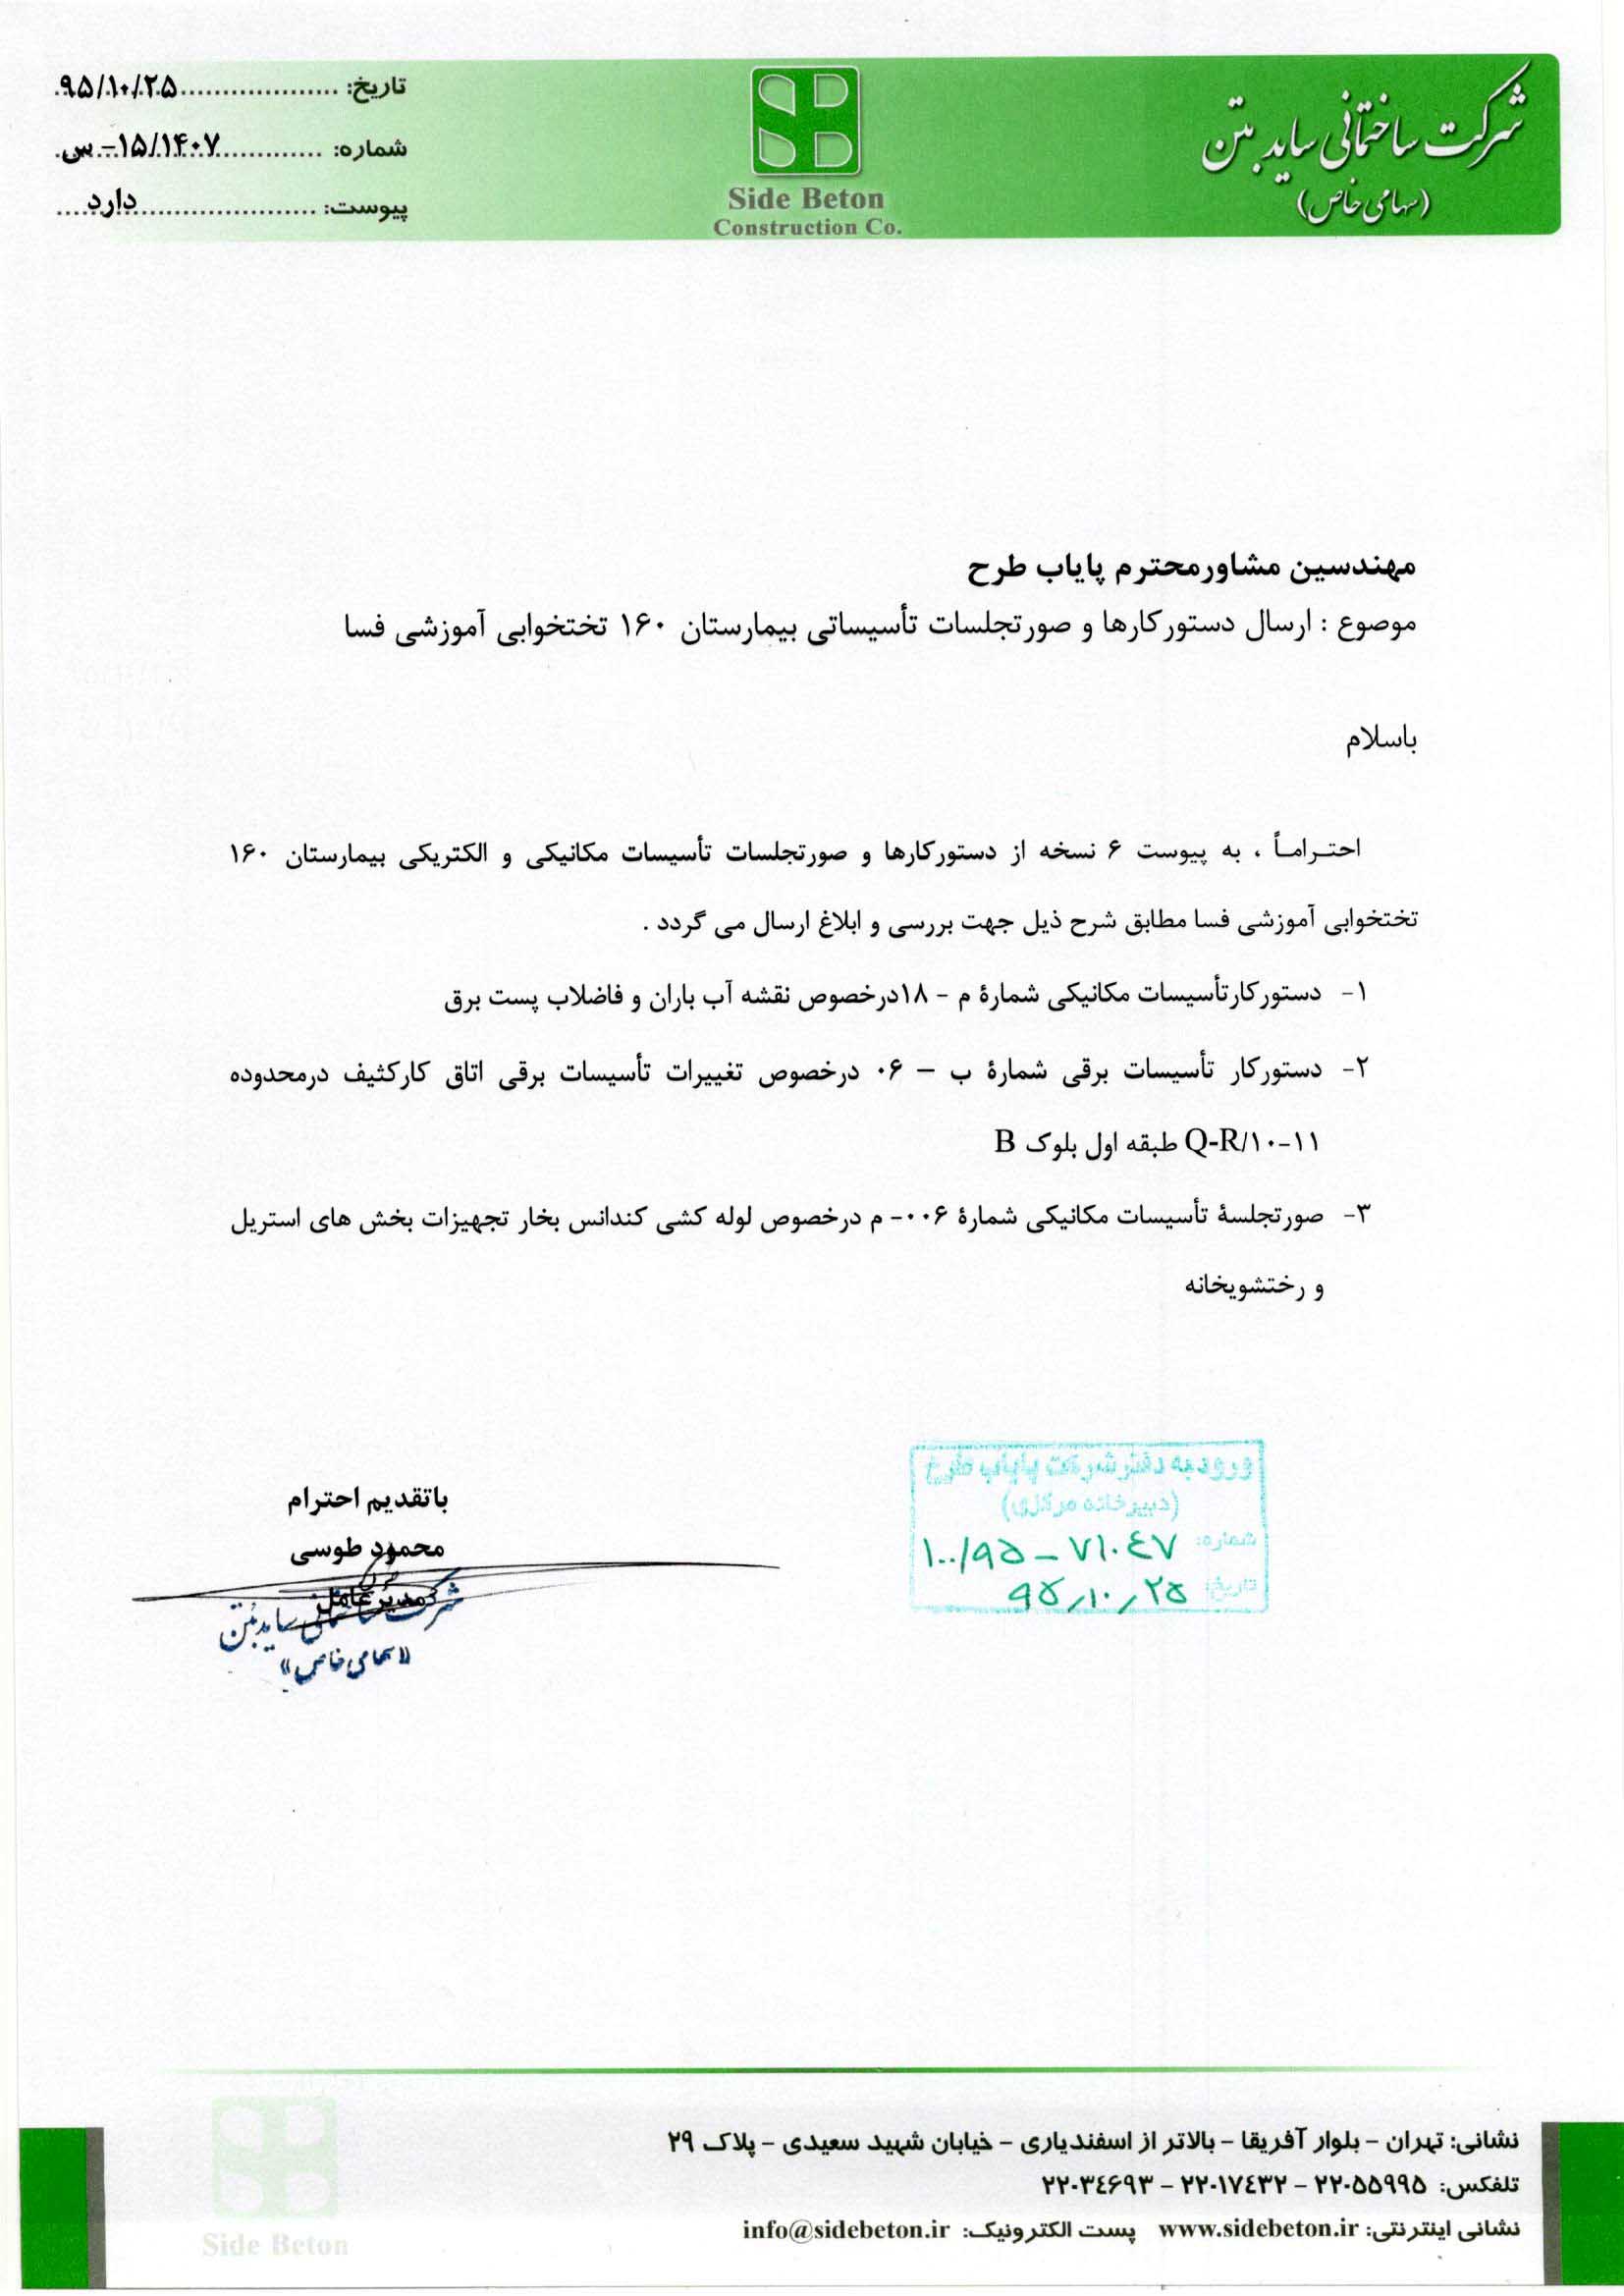 شرکت ساختمانی ساید بتن
(سهامی خاص)
Side Beton
Construction Co.
تاریخ: ۹۵/۱۰/۲۵
شماره: ۱۵/۱۴۰۷- س
پیوست: دارد
مهندسین مشاورمحترم پایاب طرح
موضوع : ارسال دستورکارها و صورتجلسات تأسیساتی بیمارستان ۱۶۰ تختخوابی آموزشی فسا
باسلام
احتـرامـاً ، به پیوست ۶ نسخه از دستورکارها و صورتجلسات تأسیسات مکانیکی و الکتریکی بیمارستان ۱۶۰
تختخوابی آموزشی فسا مطابق شرح ذیل جهت بررسی و ابلاغ ارسال می گردد .
۱- دستورکارتأسیسات مکانیکی شمارۀ م - ۱۸درخصوص نقشه آب باران و فاضلاب پست برق
۲- دستورکار تأسیسات برقی شمارۀ ب – ۰۶ درخصوص تغییرات تأسیسات برقی اتاق کارکثیف درمحدوده
Q-R/۱۰-۱۱ طبقه اول بلوک B
۳- صورتجلسۀ تأسیسات مکانیکی شمارۀ ۰۰۶- م درخصوص لوله کشی کندانس بخار تجهیزات بخش های استریل
و رختشویخانه
باتقدیم احترام
محمود طوسی
مدیرعامل
شرکت ساختمانی ساید بتن
«سهامی خاص»
ورودیه دفتر شرکت پایاب طرح
(دبیرخانه مرکزی)
شماره: ۱۰۰/۹۵ - ۷۱۰٤۷
تاریخ: ۹۵/۱۰/۲۵
نشانی: تهران - بلوار آفریقا - بالاتر از اسفندیاری - خیابان شهید سعیدی - پلاک ۲۹
تلفکس: ۲۲۰۵۵۹۹۵ - ۲۲۰۱۷٤۳۲ - ۲۲۰۳٤۶۹۳
نشانی اینترنتی: www.sidebeton.ir پست الکترونیک: info@sidebeton.ir
Side Beton